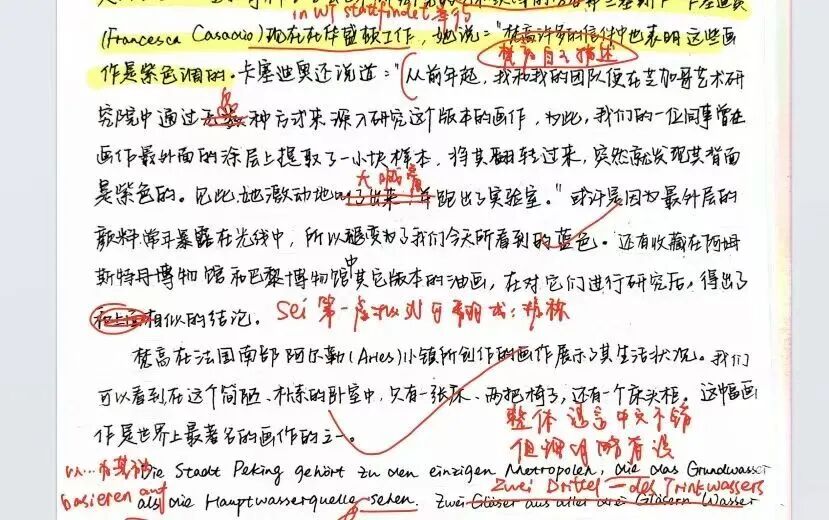 in WP stattfindet
(Francesca Casadio)现在在华盛顿工作,她说:"梵高许多的信件中也表明这些画
梵高自己描述
作是紫色调的。卡塞迪奥还说道:"从前年起,我和我的团队便在芝加哥艺术研
究院中通过 种方式来深入研究这个版本的画作,为此,我们的一位同事曾在
画作最外面的涂层上提取了一小块样本,将其翻转过来,突然就发现其背面
大喊着
是紫色的。因此,她激动地叫了出来,并跑出了实验室。"或许是因为最外层的
颜料常年暴露在光线中,所以褪变为了我们今天所看到的蓝色。还有收藏在阿姆
斯特丹博物馆和巴黎博物馆中其它版本的油画,在对它们进行研究后,得出了
相似的结论。 sei 第一虚拟式
梵高在法国南部阿尔勒(Arles)小镇所创作的画作展示了其生活状况。我们
可以看到在这个简陋、朴素的卧室中,只有一张床、两把椅子,还有一个床头柜。这幅画
整体 语言中文不错
作是世界上最著名的画作的之一。
但 明 有误
以…为基础 Die Stadt Peking gehört zu den einzigen Metropolen, die das Grundwasser
basieren auf als die Hauptwasserquelle sehen. Zwei Gläser aus aller drei Gläsern Wasser
Zwei Drittel des Trinkwassers